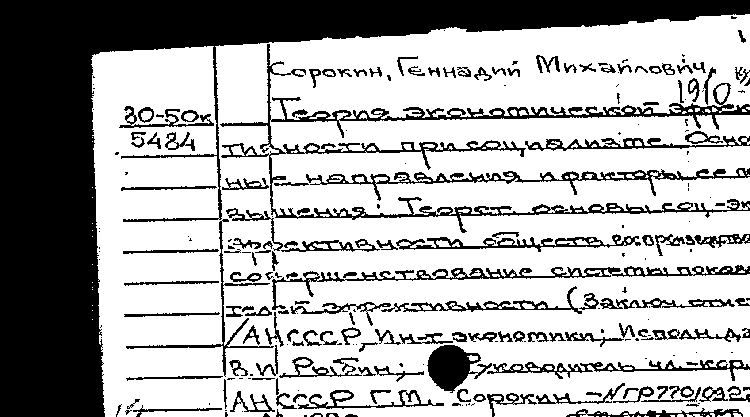 Сорокин, Геннадий Михайлович,
1910
80-50к Теория экономической эффек
5484 тивности при социализме. Осно
ные направления и факторы ее п
вышения: Теорет. основы соц.-эк
эффективности обществ. воспроизводства
совершенствование системы показа
телей эффективности (Заключ. отче
/АН СССР, Ин-т экономики; Исполн.
В.И. Рыбин; Руководитель чл.-кор.
АН СССР Г.М. Сорокин -№ГР7701092